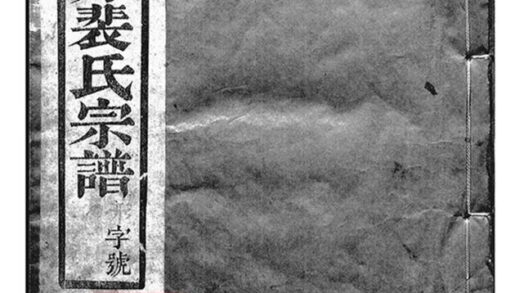 裴氏宗譜
字號